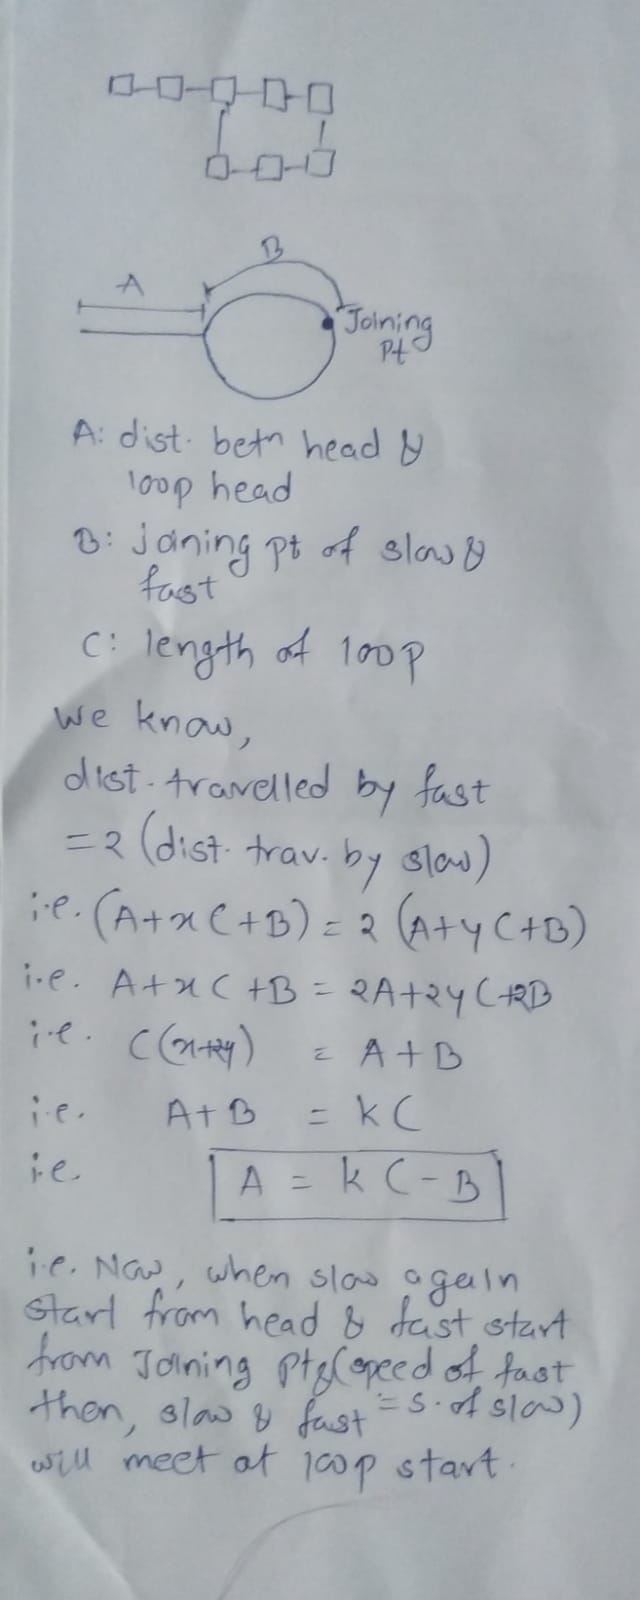 A
B
Joining
Pt
A: dist. betn head &
loop head
B: joining pt of slow &
fast
C: length of loop
we know,
dist. travelled by fast
= 2 (dist. trav. by slow)
i.e. (A+xC+B) = 2 (A+yC+B)
i.e. A+xC+B = 2A+2yC+2B
i.e. C(x+2y) = A+B
i.e. A+B = kC
i.e. A = kC-B
i.e. Now, when slow again
start from head & fast start
from Joining pt & (speed of fast
then, slow & fast = s. of slow)
will meet at loop start.